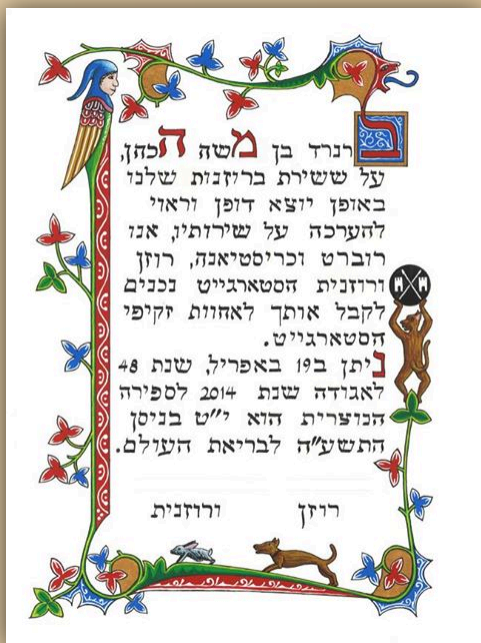 ברנרד בן משה הכהן,
על ששירת בריזנות שלנו
באופן יוצא דופן וראוי
להערכה על שירותיו, אנו
רוברט וכריסטיאנה, רוזן
ורוזנית הסטארגייט נכנים
לקבל אותך לאחוות זקיפי
הסטארגייט.
ניתן ב19 באפריל, שנת 48
לאגודה שנת 2014 לספירה
הנוצרית הוא י"ט בניסן
התשע"ה לבריאת העולם.
רוזן ורוזנית